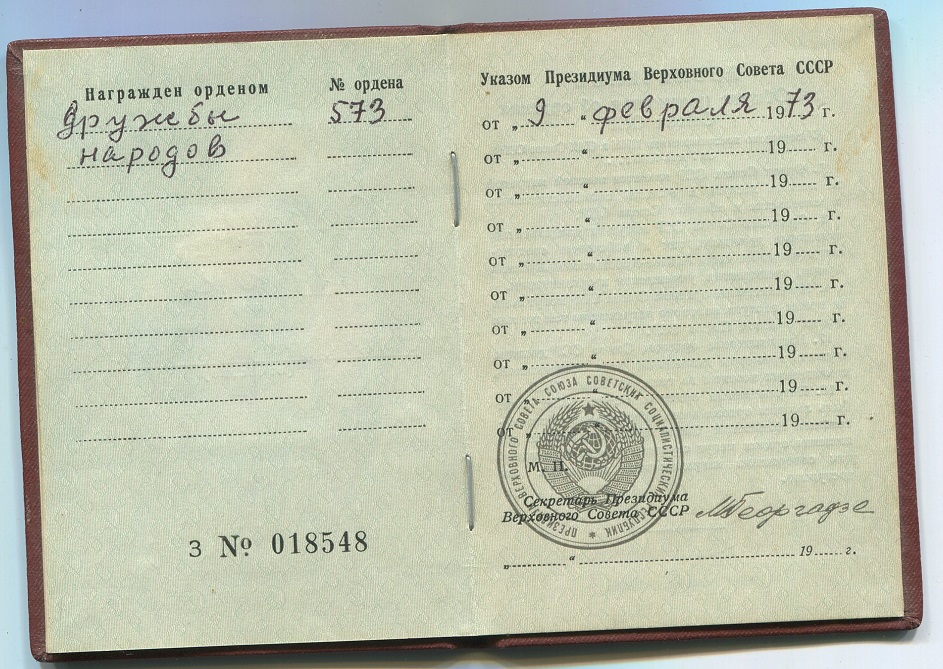 Награжден орденом
№ ордена
Дружбы
573
народов
З № 018548
Указом Президиума Верховного Совета СССР
от „ 9 “ февраля 1973 г.
от „ “ 19 г.
от „ “ 19 г.
от „ “ 19 г.
от „ “ 19 г.
от „ “ 19 г.
от „ “ 19 г.
от „ “ 19 г.
от „ “ 19 г.
от „ “ 19 г.
ПРЕЗИДИУМ ВЕРХОВНОГО СОВЕТА СОЮЗА СОВЕТСКИХ СОЦИАЛИСТИЧЕСКИХ РЕСПУБЛИК
М. П.
Секретарь Президиума
Верховного Совета СССР
МГеоргадзе
„ “ 19 г.